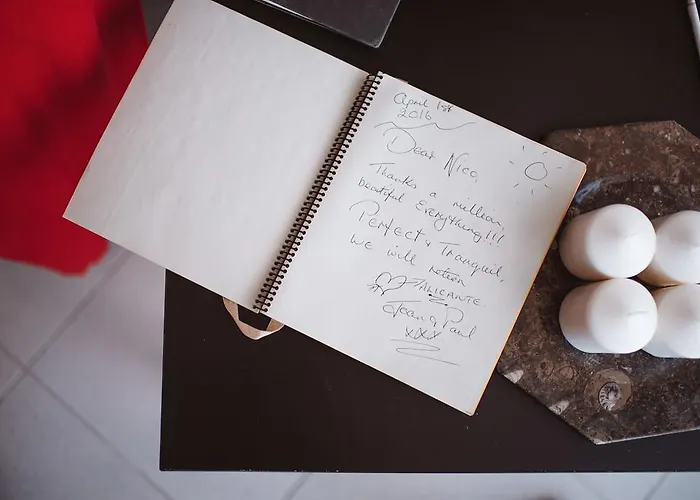 April 1st
2016
Dear Nico,
Thanks a million,
beautiful Everything!!!
Perfect & Tranquil,
We will return
ALICANTE.
Jean & Paul
xxx